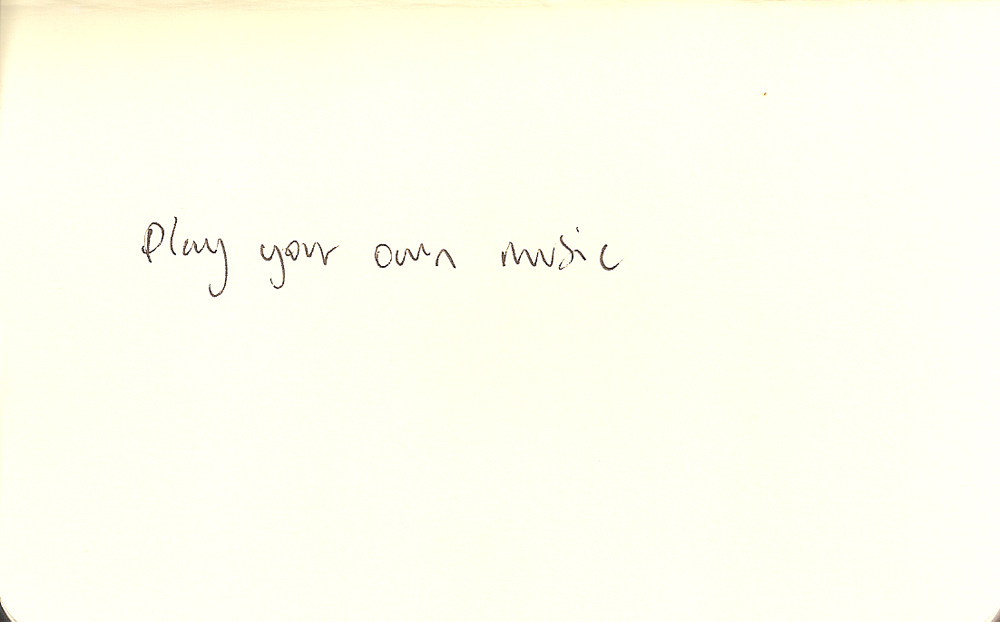 Play your own music